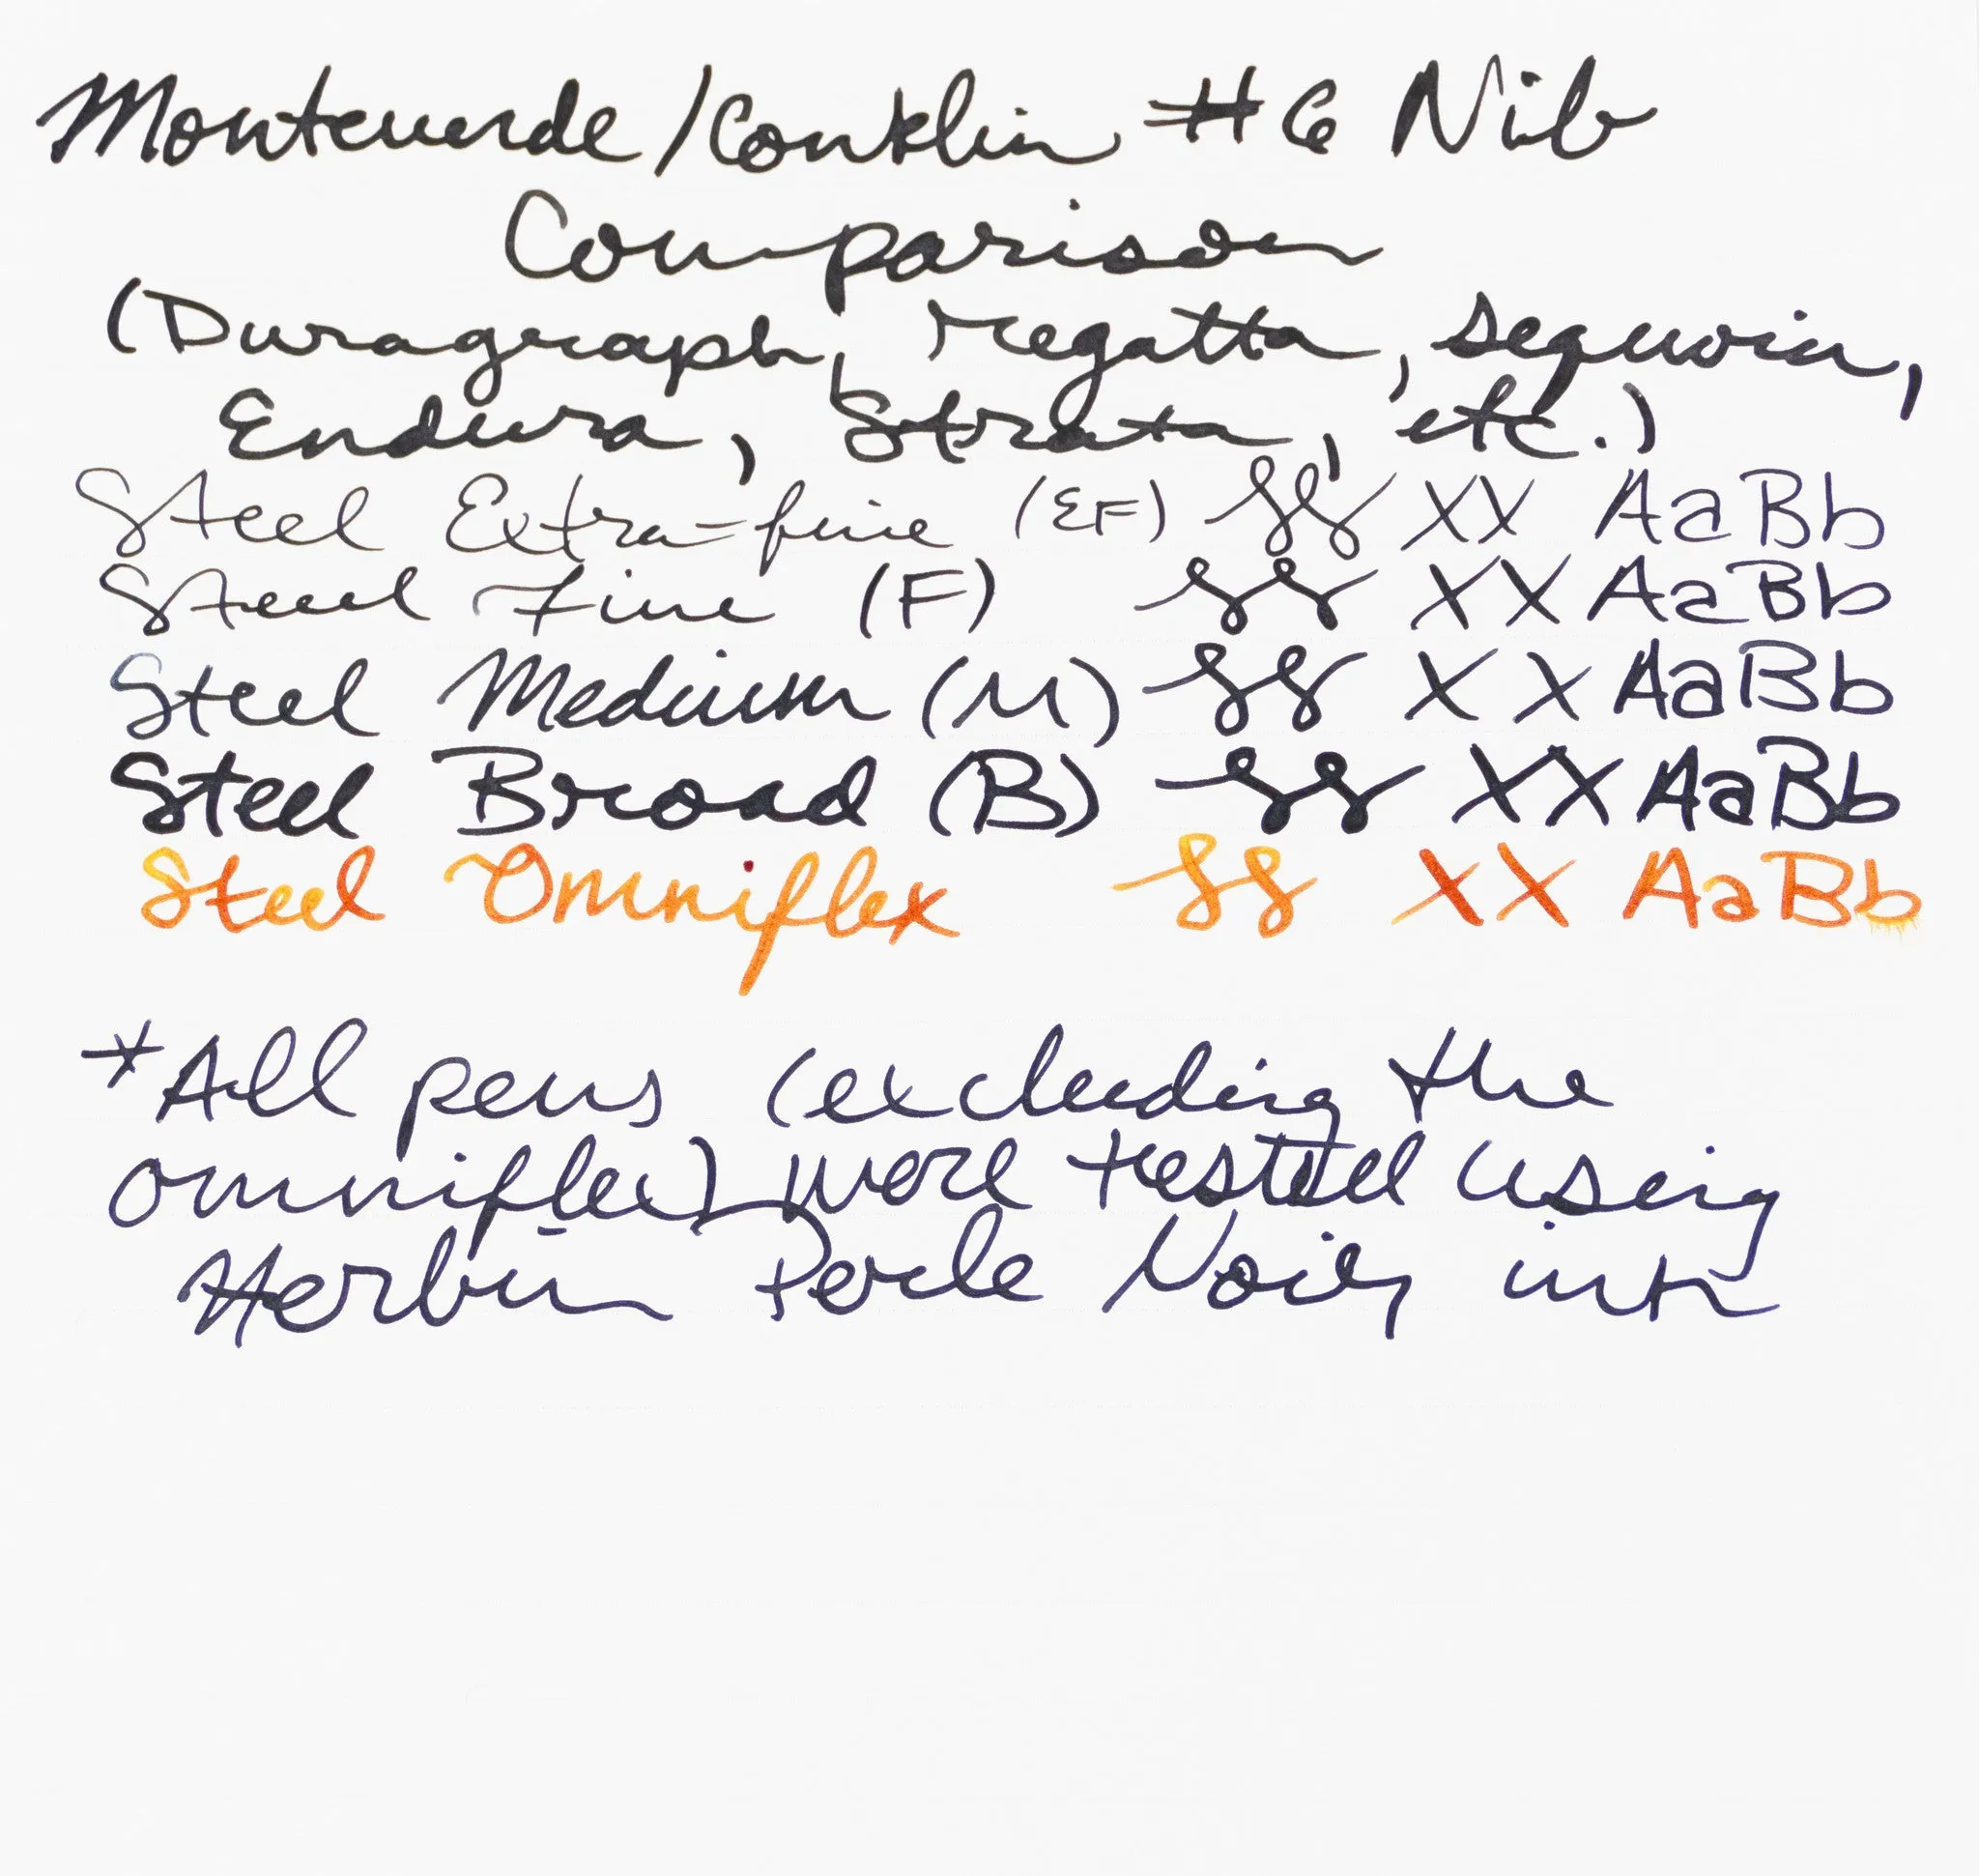 Monteverde/Conklin #6 Nib
Comparison
(Duragraph, regatta, sequoia,
Endura, Strata, etc.)
Steel Extra-fine (EF) XX AaBb
Steel Fine (F) XX AaBb
Steel Medium (M) XX AaBb
Steel Broad (B) XX AaBb
Steel Omniflex XX AaBb
*All pens (excluding the
omniflex) were tested using
Herbin Perle Noir ink